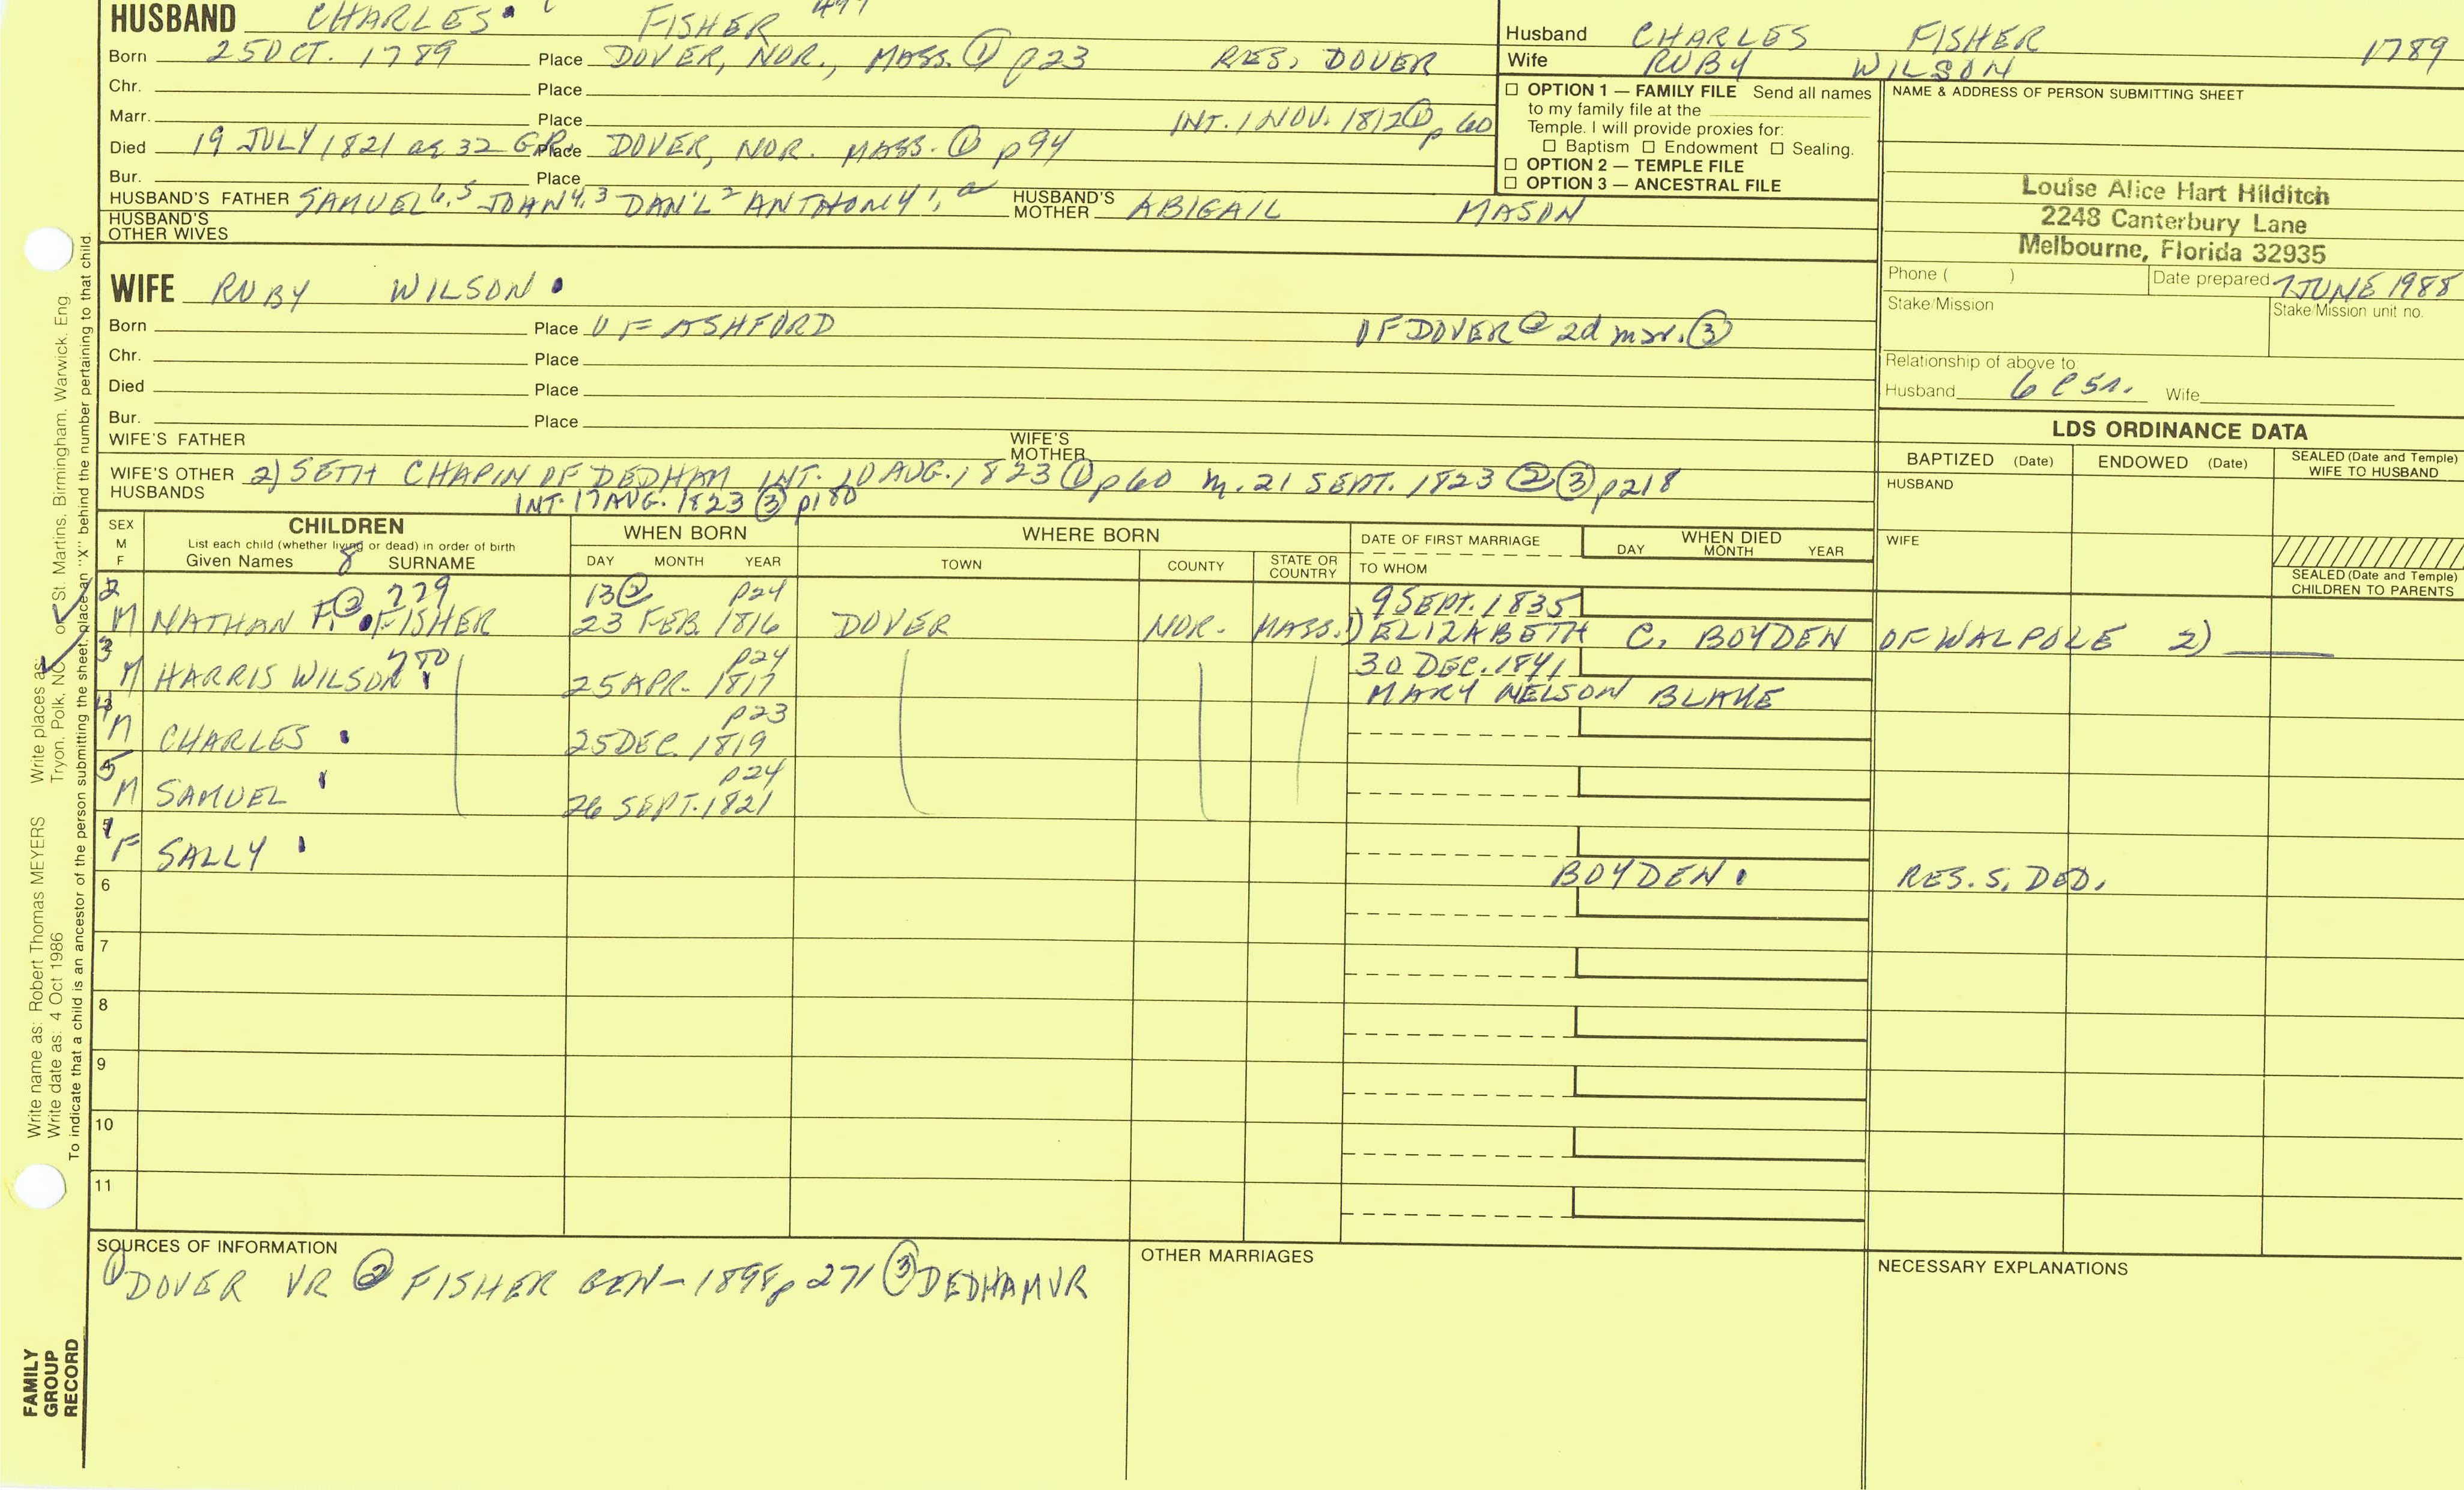 HUSBAND CHARLES FISHER
Born 25 OCT. 1789 Place DOVER, NOR., MASS. ① p23 RES. DOVER
Chr. Place
Marr. Place INT. 1 NOV. 1812 ① p 60
Died 19 JULY 1821 ae 32 G.R. Place DOVER, NOR. MASS. ① p94
Bur. Place
HUSBAND'S FATHER SAMUEL 6,5 JOHN 4,3 DAN'L 2 ANTHONY 1, a HUSBAND'S MOTHER ABIGAIL MASON
HUSBAND'S OTHER WIVES
Husband CHARLES FISHER 1789
Wife RUBY WILSON
☐ OPTION 1 — FAMILY FILE Send all names
to my family file at the
Temple. I will provide proxies for:
☐ Baptism ☐ Endowment ☐ Sealing.
☐ OPTION 2 — TEMPLE FILE
☐ OPTION 3 — ANCESTRAL FILE
NAME & ADDRESS OF PERSON SUBMITTING SHEET
Louise Alice Hart Hilditch
2248 Canterbury Lane
Melbourne, Florida 32935
Phone ( ) Date prepared 7 JUNE 1988
Stake/Mission Stake/Mission unit no.
Relationship of above to
Husband 6 C 5 r. Wife
WIFE RUBY WILSON
Born Place OF ASHFORD OF DOVER @ 2d mar. ③
Chr. Place
Died Place
Bur. Place
WIFE'S FATHER WIFE'S MOTHER
WIFE'S OTHER HUSBANDS 2) SETH CHAPIN OF DEDHAM INT. 10 AUG. 1823 ① p60 m. 21 SEPT. 1823 ② ③ p218
INT. 17 AUG. 1823 ③ p180
LDS ORDINANCE DATA
BAPTIZED (Date) ENDOWED (Date) SEALED (Date and Temple) WIFE TO HUSBAND
HUSBAND
WIFE
SEALED (Date and Temple) CHILDREN TO PARENTS
SEX M F
CHILDREN
List each child (whether living or dead) in order of birth
Given Names 8 SURNAME
WHEN BORN
DAY MONTH YEAR
WHERE BORN
TOWN COUNTY STATE OR COUNTRY
DATE OF FIRST MARRIAGE
TO WHOM
WHEN DIED
DAY MONTH YEAR
2 779 13 ② p24 9 SEPT. 1835
M NATHAN F. ② FISHER 23 FEB. 1816 DOVER NOR. MASS. 1) ELIZABETH C. BOYDEN OF WALPOLE 2)
3 780 p24 30 DEC. 1841
M HARRIS WILSON 25 APR. 1817 MARY NELSON BLAKE
4 p23
M CHARLES 25 DEC. 1819
5 p24
M SAMUEL 26 SEPT. 1821
1
F SALLY
BOYDEN RES. S. DED.
6
7
8
9
10
11
SOURCES OF INFORMATION
① DOVER VR ② FISHER GEN – 1898 p 271 ③ DEDHAM VR
OTHER MARRIAGES
NECESSARY EXPLANATIONS
Write name as: Robert Thomas MEYERS Write places as:
Write date as: 4 Oct 1986 Tryon, Polk, NC or St. Martins, Birmingham, Warwick, Eng
To indicate that a child is an ancestor of the person submitting the sheet, place an "X" behind the number pertaining to that child.
FAMILY
GROUP
RECORD